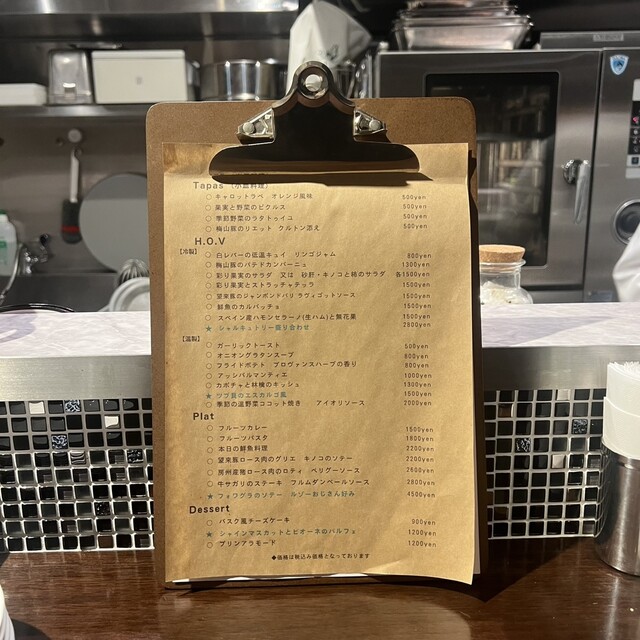 Tapas （小皿料理）
○ キャロットラペ オレンジ風味 500yen
○ 果実と野菜のピクルス 500yen
○ 季節野菜のラタトゥイユ 500yen
○ 梅山豚のリエット クルトン添え 500yen
H.O.V
【冷製】
○ 白レバーの低温キュイ リンゴジャム 800yen
○ 梅山豚のパテドカンパーニュ 1300yen
○ 彩り果実のサラダ 又は 砂肝・キノコと柿のサラダ 各1500yen
○ 彩り果実とストラッチャテッラ 1500yen
○ 望来豚のジャンボンドパリ ラヴィゴットソース 1500yen
○ 鮮魚のカルパッチョ 1500yen
○ スペイン産ハモンセラーノ(生ハム)と無花果 1500yen
★ シャルキュトリー盛り合わせ 2800yen
【温製】
○ ガーリックトースト 500yen
○ オニオングラタンスープ 800yen
○ フライドポテト プロヴァンスハーブの香り 800yen
○ アッシパルマンティエ 1000yen
○ カボチャと林檎のキッシュ 1300yen
★ ツブ貝のエスカルゴ風 1500yen
○ 季節の温野菜ココット焼き アイオリソース 2000yen
Plat
○ フルーツカレー 1500yen
○ フルーツパスタ 1800yen
○ 本日の鮮魚料理 2200yen
○ 望来豚ロース肉のグリエ キノコのソテー 2200yen
○ 房州産猪ロース肉のロティ ペリグーソース 2600yen
○ 牛サガリのステーキ フルムダンベールソース 2800yen
★ フォワグラのソテー ルジーおじさん好み 4500yen
Dessert
○ バスク風チーズケーキ 900yen
★ シャインマスカットとピオーネのパルフェ 1200yen
○ プリンアラモード 1200yen
◆価格は税込み価格となっております